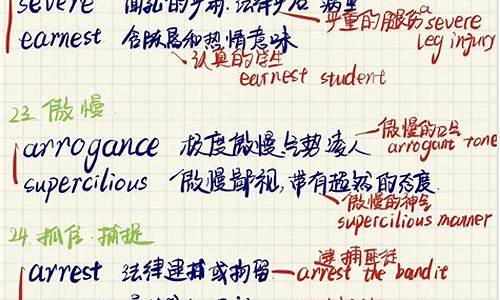 severe
严重的腿伤 a severe
leg injury
earnest 含既居和热情意味
认真的学生
earnest student
23. 傲慢
arrogance 极度傲慢,气势凌人
傲慢的口气
arrogant tone
supercilious 傲慢鄙视,带有超然的态度
傲慢的神气
supercilious manner
24. 抓住.捕捉
arrest 法律逮捕或拘留
逮捕匪徒
arrest the bandit